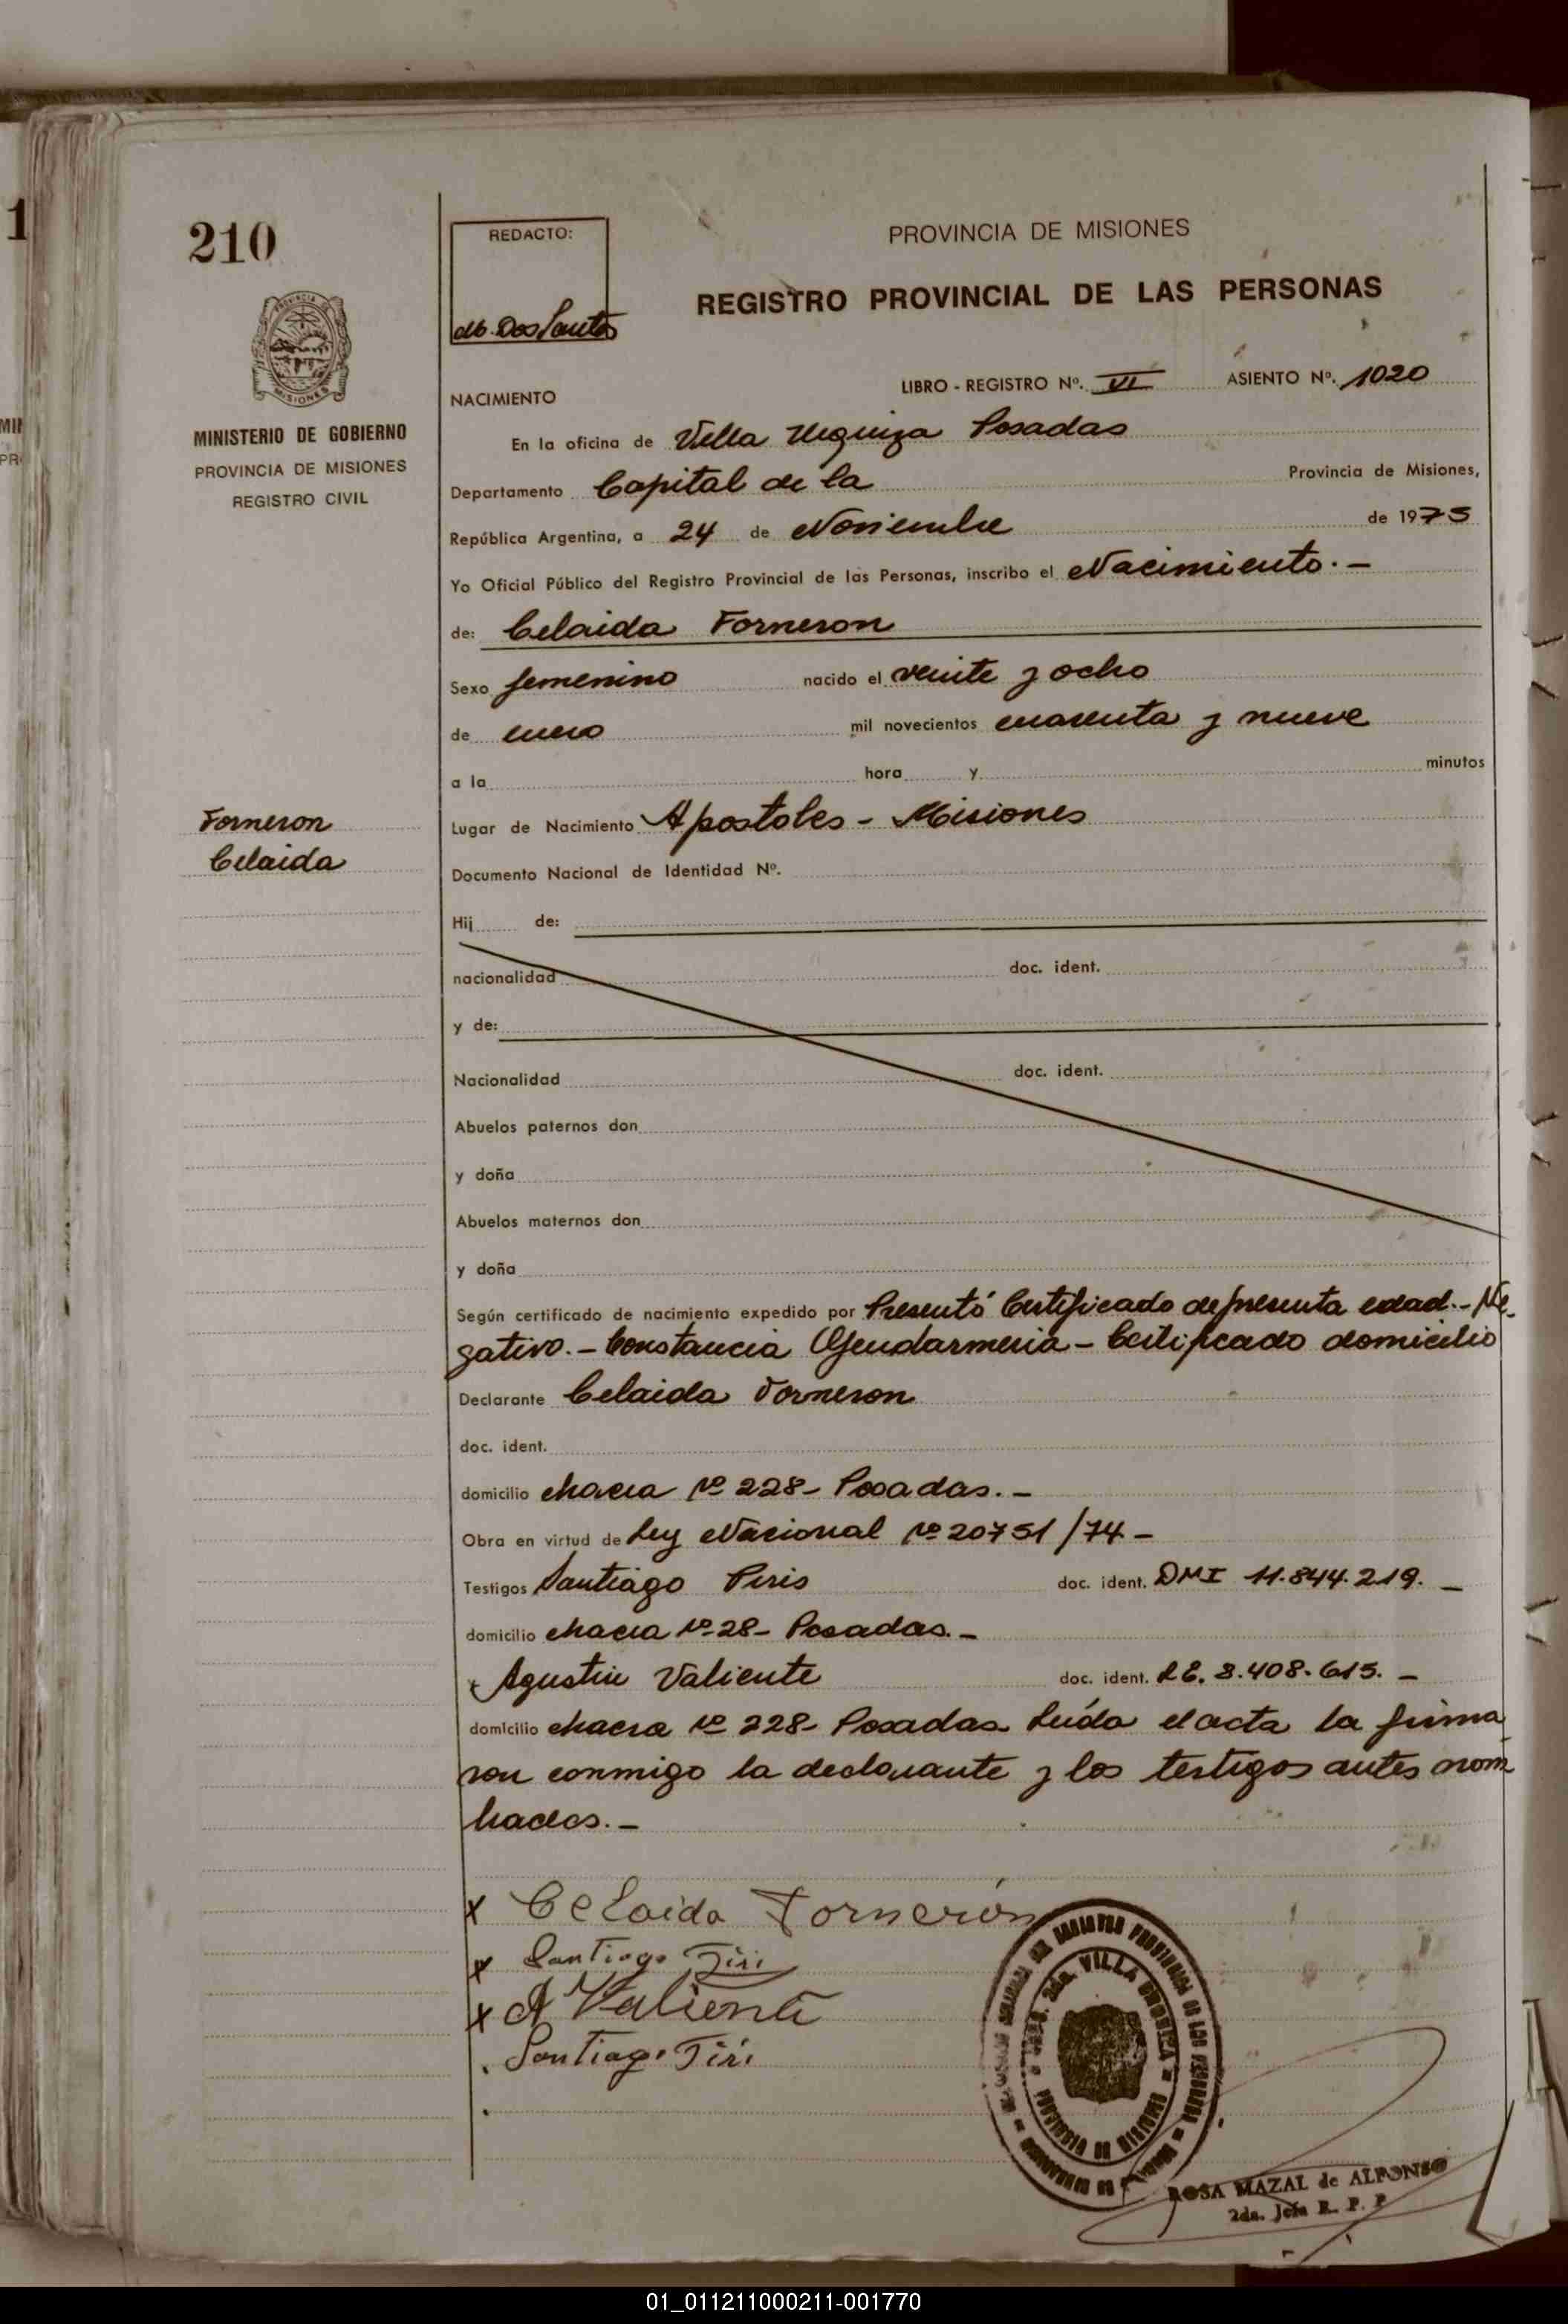 1
210
REDACTO:
db. Dos Santos
PROVINCIA DE MISIONES
REGISTRO PROVINCIAL DE LAS PERSONAS
MINISTERIO DE GOBIERNO
PROVINCIA DE MISIONES
REGISTRO CIVIL
LIBRO - REGISTRO Nº. VI ASIENTO Nº. 1020
NACIMIENTO
En la oficina de Villa Urquiza Posadas
Departamento Capital de la Provincia de Misiones,
República Argentina, a 24 de Noviembre de 1975
Yo Oficial Público del Registro Provincial de las Personas, inscribo el Nacimiento. -
de: Celaida Forneron
Sexo femenino nacido el veinte y ocho
de enero mil novecientos cuarenta y nueve
a la hora y minutos
Forneron
Celaida
Lugar de Nacimiento Apostoles - Misiones
Documento Nacional de Identidad Nº.
Hij de:
nacionalidad doc. ident.
y de:
Nacionalidad doc. ident.
Abuelos paternos don
y doña
Abuelos maternos don
y doña
Según certificado de nacimiento expedido por Presentó Certificado de presunta edad. - Ne-
gativo. - Constancia Gendarmeria - Certificado domicilio
Declarante Celaida Forneron
doc. ident.
domicilio chacra Nº 228 - Posadas. -
Obra en virtud de Ley Nacional Nº 20751/74 -
Testigos Santiago Piris doc. ident. DMI 11.844.219. -
domicilio chacra Nº 28 - Posadas. -
Agustin Valiente doc. ident. LE. 8.408.615. -
domicilio chacra Nº 228 - Posadas Leída el acta la firma
ron conmigo la declarante y los testigos antes nom
brados. -
x Celaida Fornerón
x Santiago Piri
x A Valiente
. Santiago Piri
2da. VILLA URQUIZA
PROVINCIA DE MISIONES
ROSA MAZAL de ALFONSO
2da. Jefa R. P. P.
01_011211000211-001770